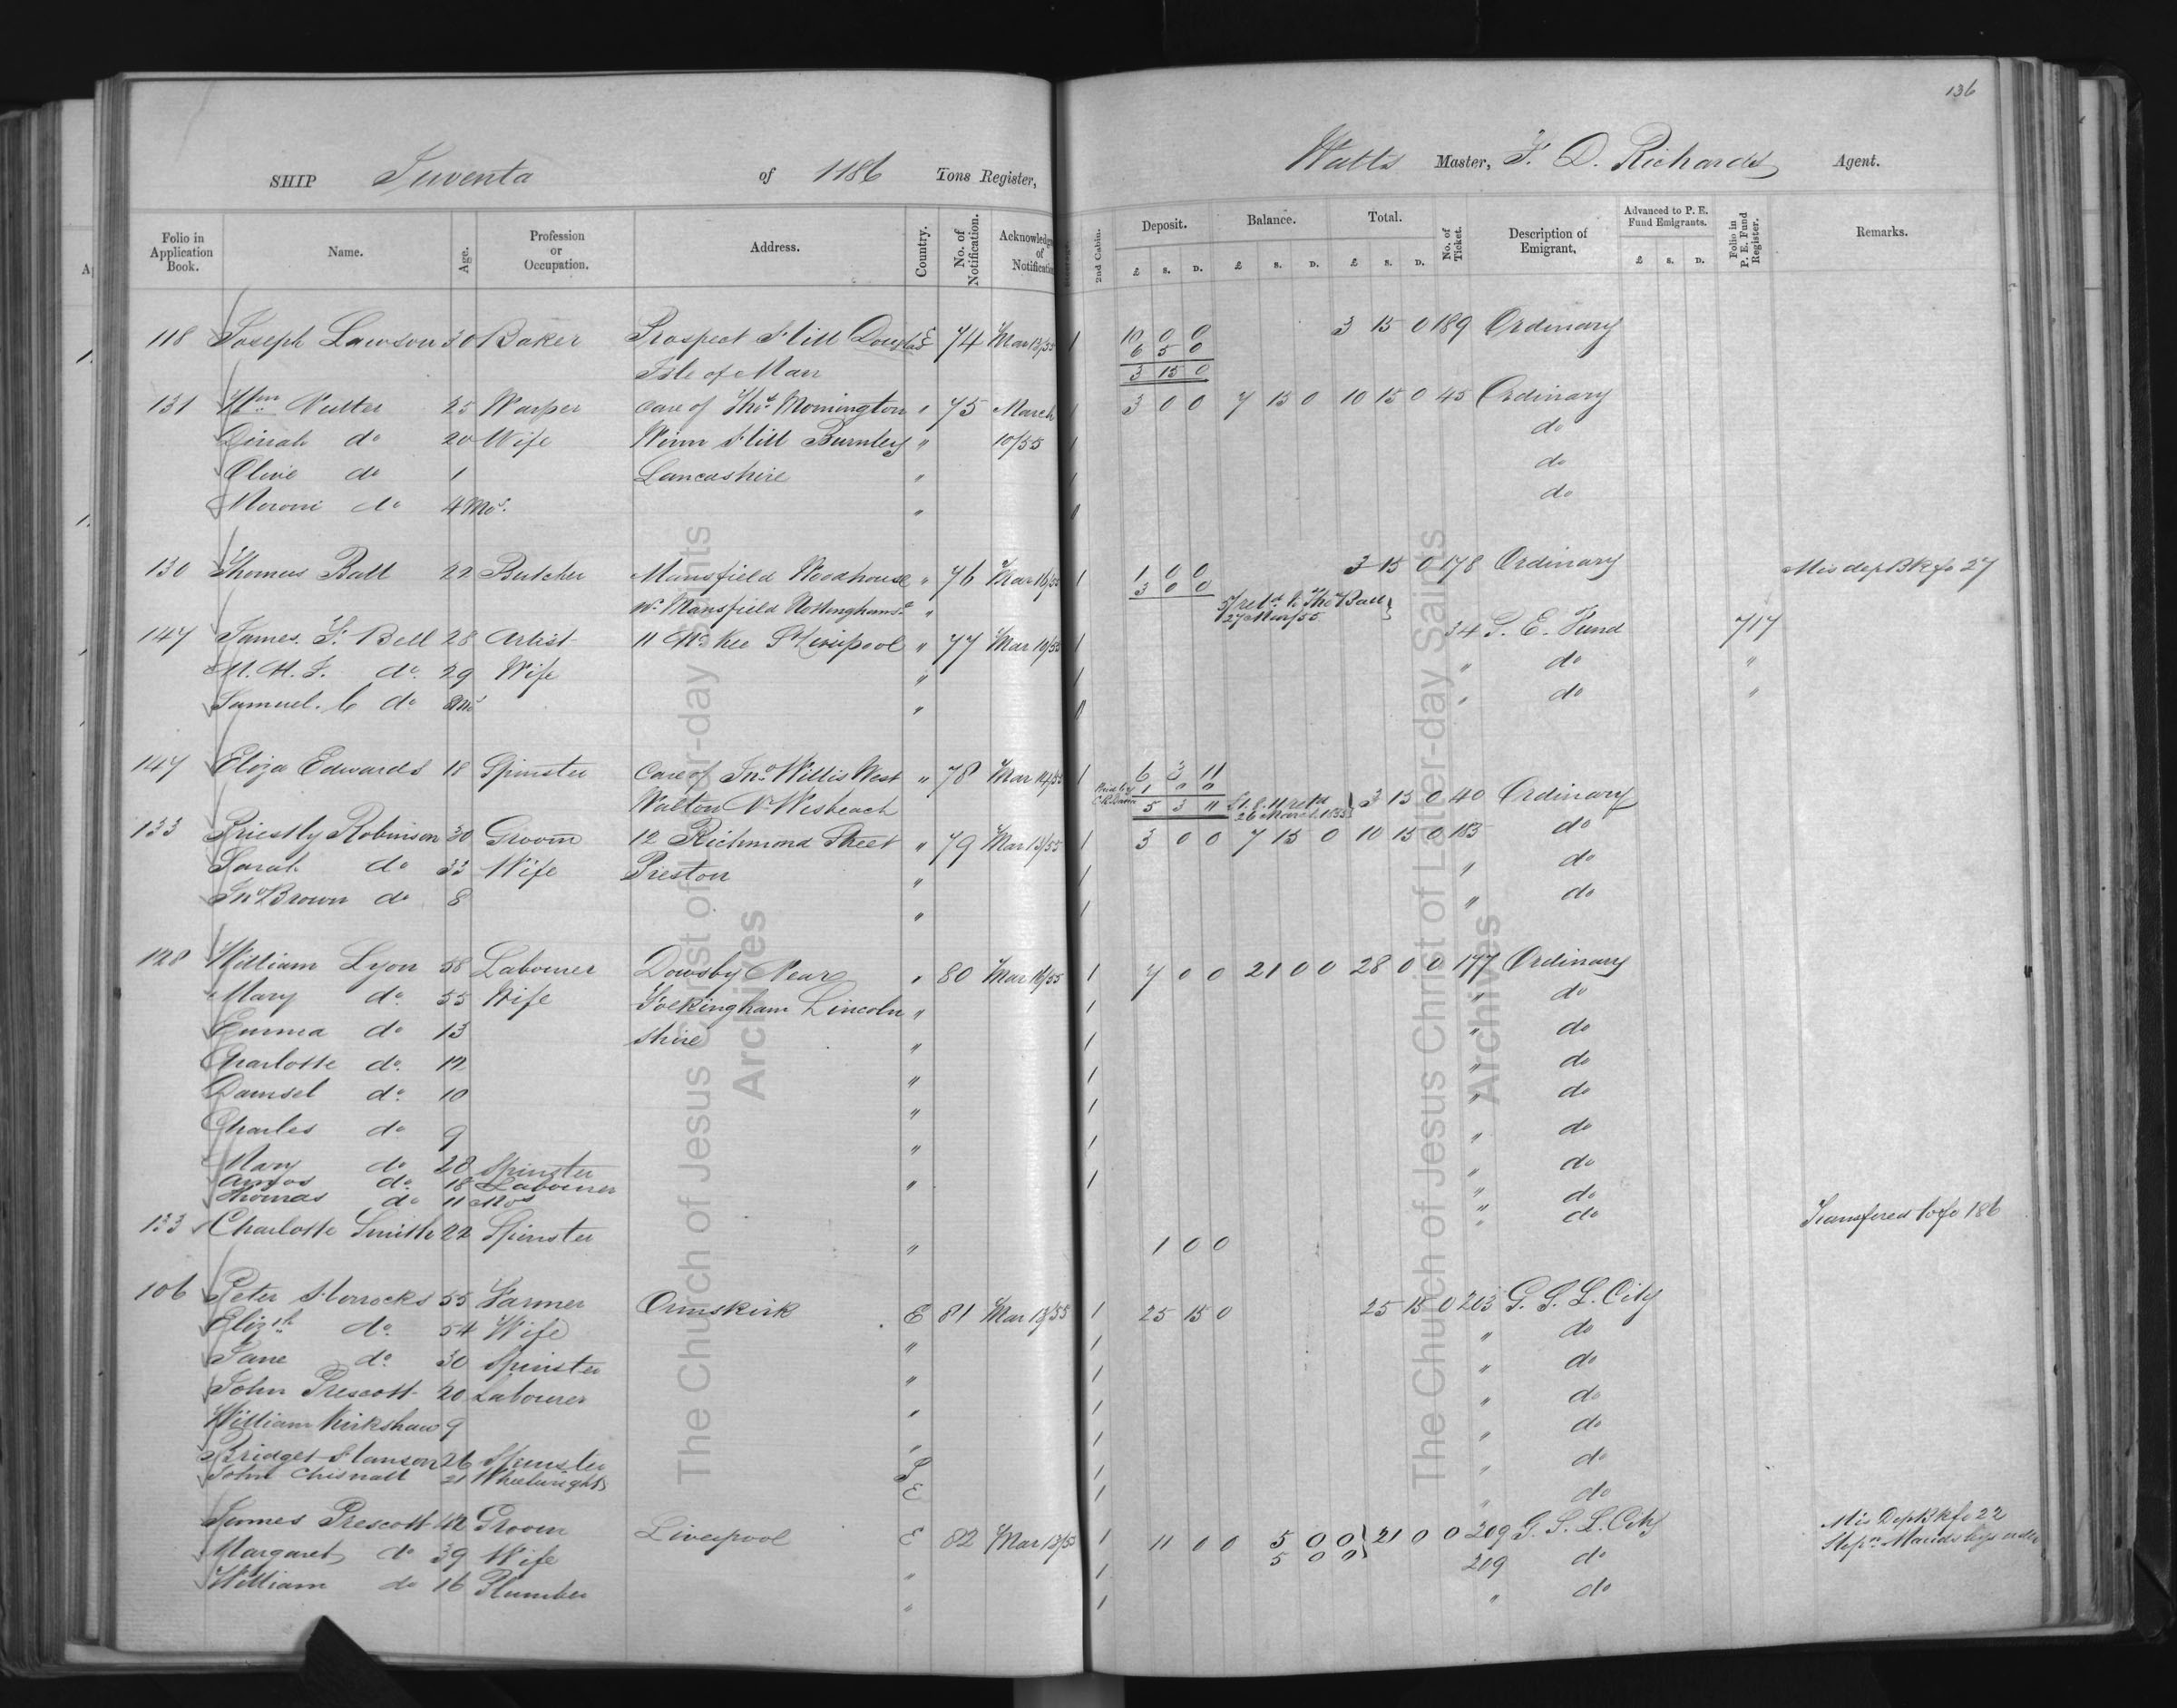 136
SHIP Juventa of 1186 Tons Register, Watts Master, F. D. Richards Agent.
Folio in Application Book. Name. Age. Profession or Occupation. Address. Country. No. of Notification. Acknowledg of Notification 2nd Cabin. Deposit. £ S. D. Balance. £ S. D. Total. £ S. D. No. of Ticket. Description of Emigrant, Advanced to P. E. Fund Emigrants. £ S. D. Folio in P. E. Fund Register. Remarks.
118 Joseph Lawson 30 Baker Prospect Hill Douglas E 74 Mar 13/55 1 10 0 0 3 15 0 189 Ordinary
6 5 0
Isle of Man 3 15 0
131 Wm Nutter 25 Warper care of Thos Mornington " 75 March 1 3 0 0 7 15 0 10 15 0 45 Ordinary
Dinah do 20 Wife Hill Burnley " 10/55 1 do
Olive do 1 Lancashire " 1 do
Moroni do 4 Mos. " 0 do
130 Thomas Ball 22 Butcher Mansfield Woodhouse " 76 Mar 16/55 1 1 0 0 3 15 0 178 Ordinary Mis dep Bk fo 27
3 0 0
Nr Mansfield Nottinghams " 5/ retd to Thos Ball
27 Mar/55
147 James. F. Bell 28 Artist 11 McKee St Liverpool " 77 Mar 19/55 1 34 P. E. Fund 717
M. H. F. do. 29 Wife " 1 " do "
Samuel. C do " 0 " do "
147 Eliza Edwards 18 Spinster Care of Jno. Willis West " 78 Mar 14/55 1 6 3 11
1 0 0
Walton Nr Wisbeach 5 3 11 £1. 8. 11 retd 3 15 0 40 Ordinary
26 March 1855
133 Priestly Robinson 30 Groom 12 Richmond Street " 79 Mar 13/55 1 3 0 0 7 15 0 10 15 0 183 do
Sarah do 33 Wife Preston " 1 " do
Jno Brown do 8 " 1 " do
128 William Lyon 58 Labourer Dowsby Near " 80 Mar 16/55 1 7 0 0 21 0 0 28 0 0 177 Ordinary
Mary do. 55 Wife Folkingham Lincoln " 1 " do
Emma do 13 shire " 1 " do
Charlotte do. 12 " 1 " do
Damsel do. 10 " 1 " do
Charles do 9 " 1 " do
Mary do. 20 Spinster " 1 " do
Amos do. 18 Labourer " do
Thomas do 11 Mos " do
133 Charlotte Smith 22 Spinster " 1 0 0 Transfered to fo 186
106 Peter Horrocks 55 Farmer Ormskirk E 81 Mar 13/55 1 25 15 0 25 15 0 203 G. S. L. City
Elizth do. 54 Wife " 1 " do
Jane do. 30 Spinster " 1 " do
John Prescott 20 Labourer " 1 " do
William Kirkshaw 9 " 1 " do
Bridget Hanson 26 Spinster 1 " do
John Chisnall 21 Wheelwright E 1 " do
James Prescott 42 Groom Liverpool E 82 Mar 13/55 1 11 0 0 5 0 0 21 0 0 209 G. S. L. City Mis Dep Bk fo 22
Margaret do 39 Wife " 1 5 0 0 209 do Stepn Maudsleys order
William do 16 Plumber " 1 " do
The Church of Jesus Christ of Latter-day Saints
Archives
The Church of Jesus Christ of Latter-day Saints
Archives